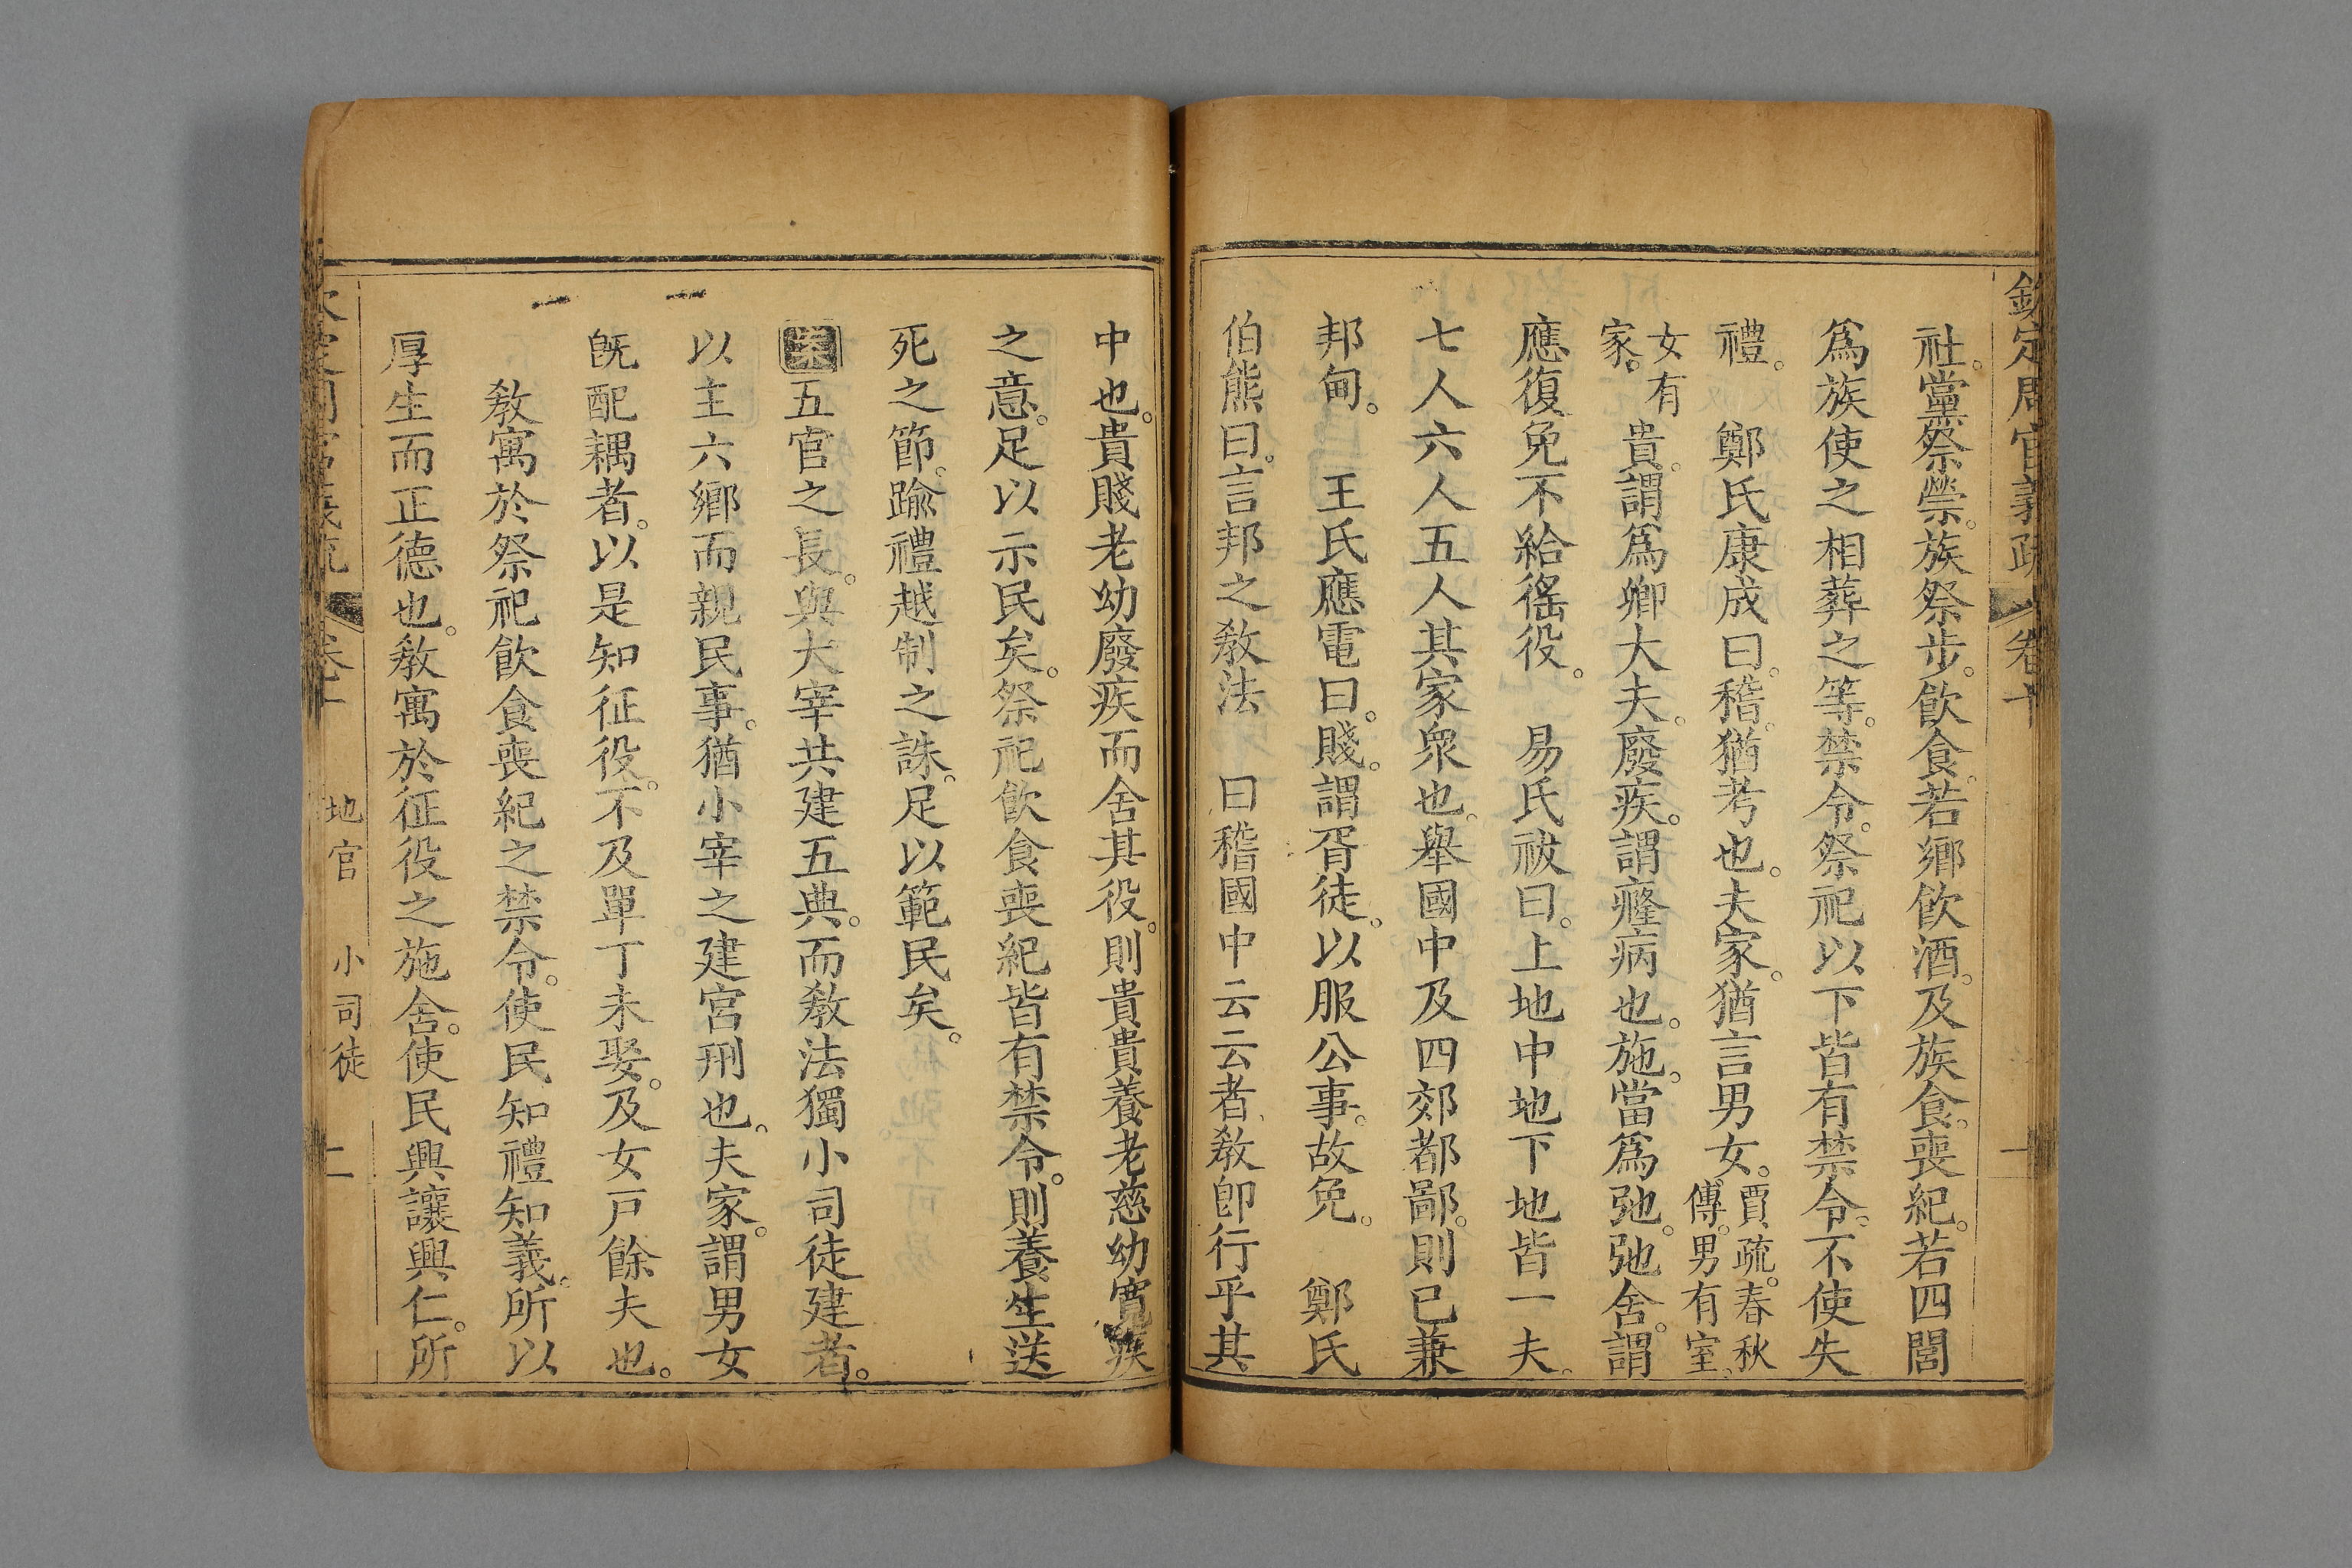 欽定周官義疏 卷十 一
社。黨祭禜。族祭步。飮食。若鄉飮酒。及族食。喪紀。若四閭
爲族使之相葬之等。禁令。祭祀以下皆有禁令。不使失
禮。 鄭氏康成曰。稽。猶考也。夫家。猶言男女。賈疏。春秋傳。男有室、
女有家。貴。謂爲卿大夫。廢疾。謂癃病也。施。當爲弛。弛舍。謂
應復免不給徭役。 易氏祓曰。上地中地下地皆一夫。
七人六人五人其家衆也。舉國中及四郊都鄙。則已兼
邦甸。 王氏應電曰。賤。謂胥徒。以服公事。故免。 鄭氏
伯熊曰。言邦之敎法 曰稽國中云云者、敎卽行乎其
中也。貴賤老幼廢疾而舍其役。則貴貴養老慈幼寬疾
之意。足以示民矣。祭祀飮食喪紀皆有禁令。則養生送
死之節。踰禮越制之誅。足以範民矣。
案五官之長。與大宰共建五典。而敎法獨小司徒建者。
以主六鄉而親民事。猶小宰之建宮刑也。夫家。謂男女
旣配耦者。以是知征役。不及單丁未娶。及女戸餘夫也。
敎寓於祭祀飮食喪紀之禁令。使民知禮知義。所以
厚生而正德也。敎寓於征役之施舍。使民興讓興仁。所
卷十 地官 小司徒 二